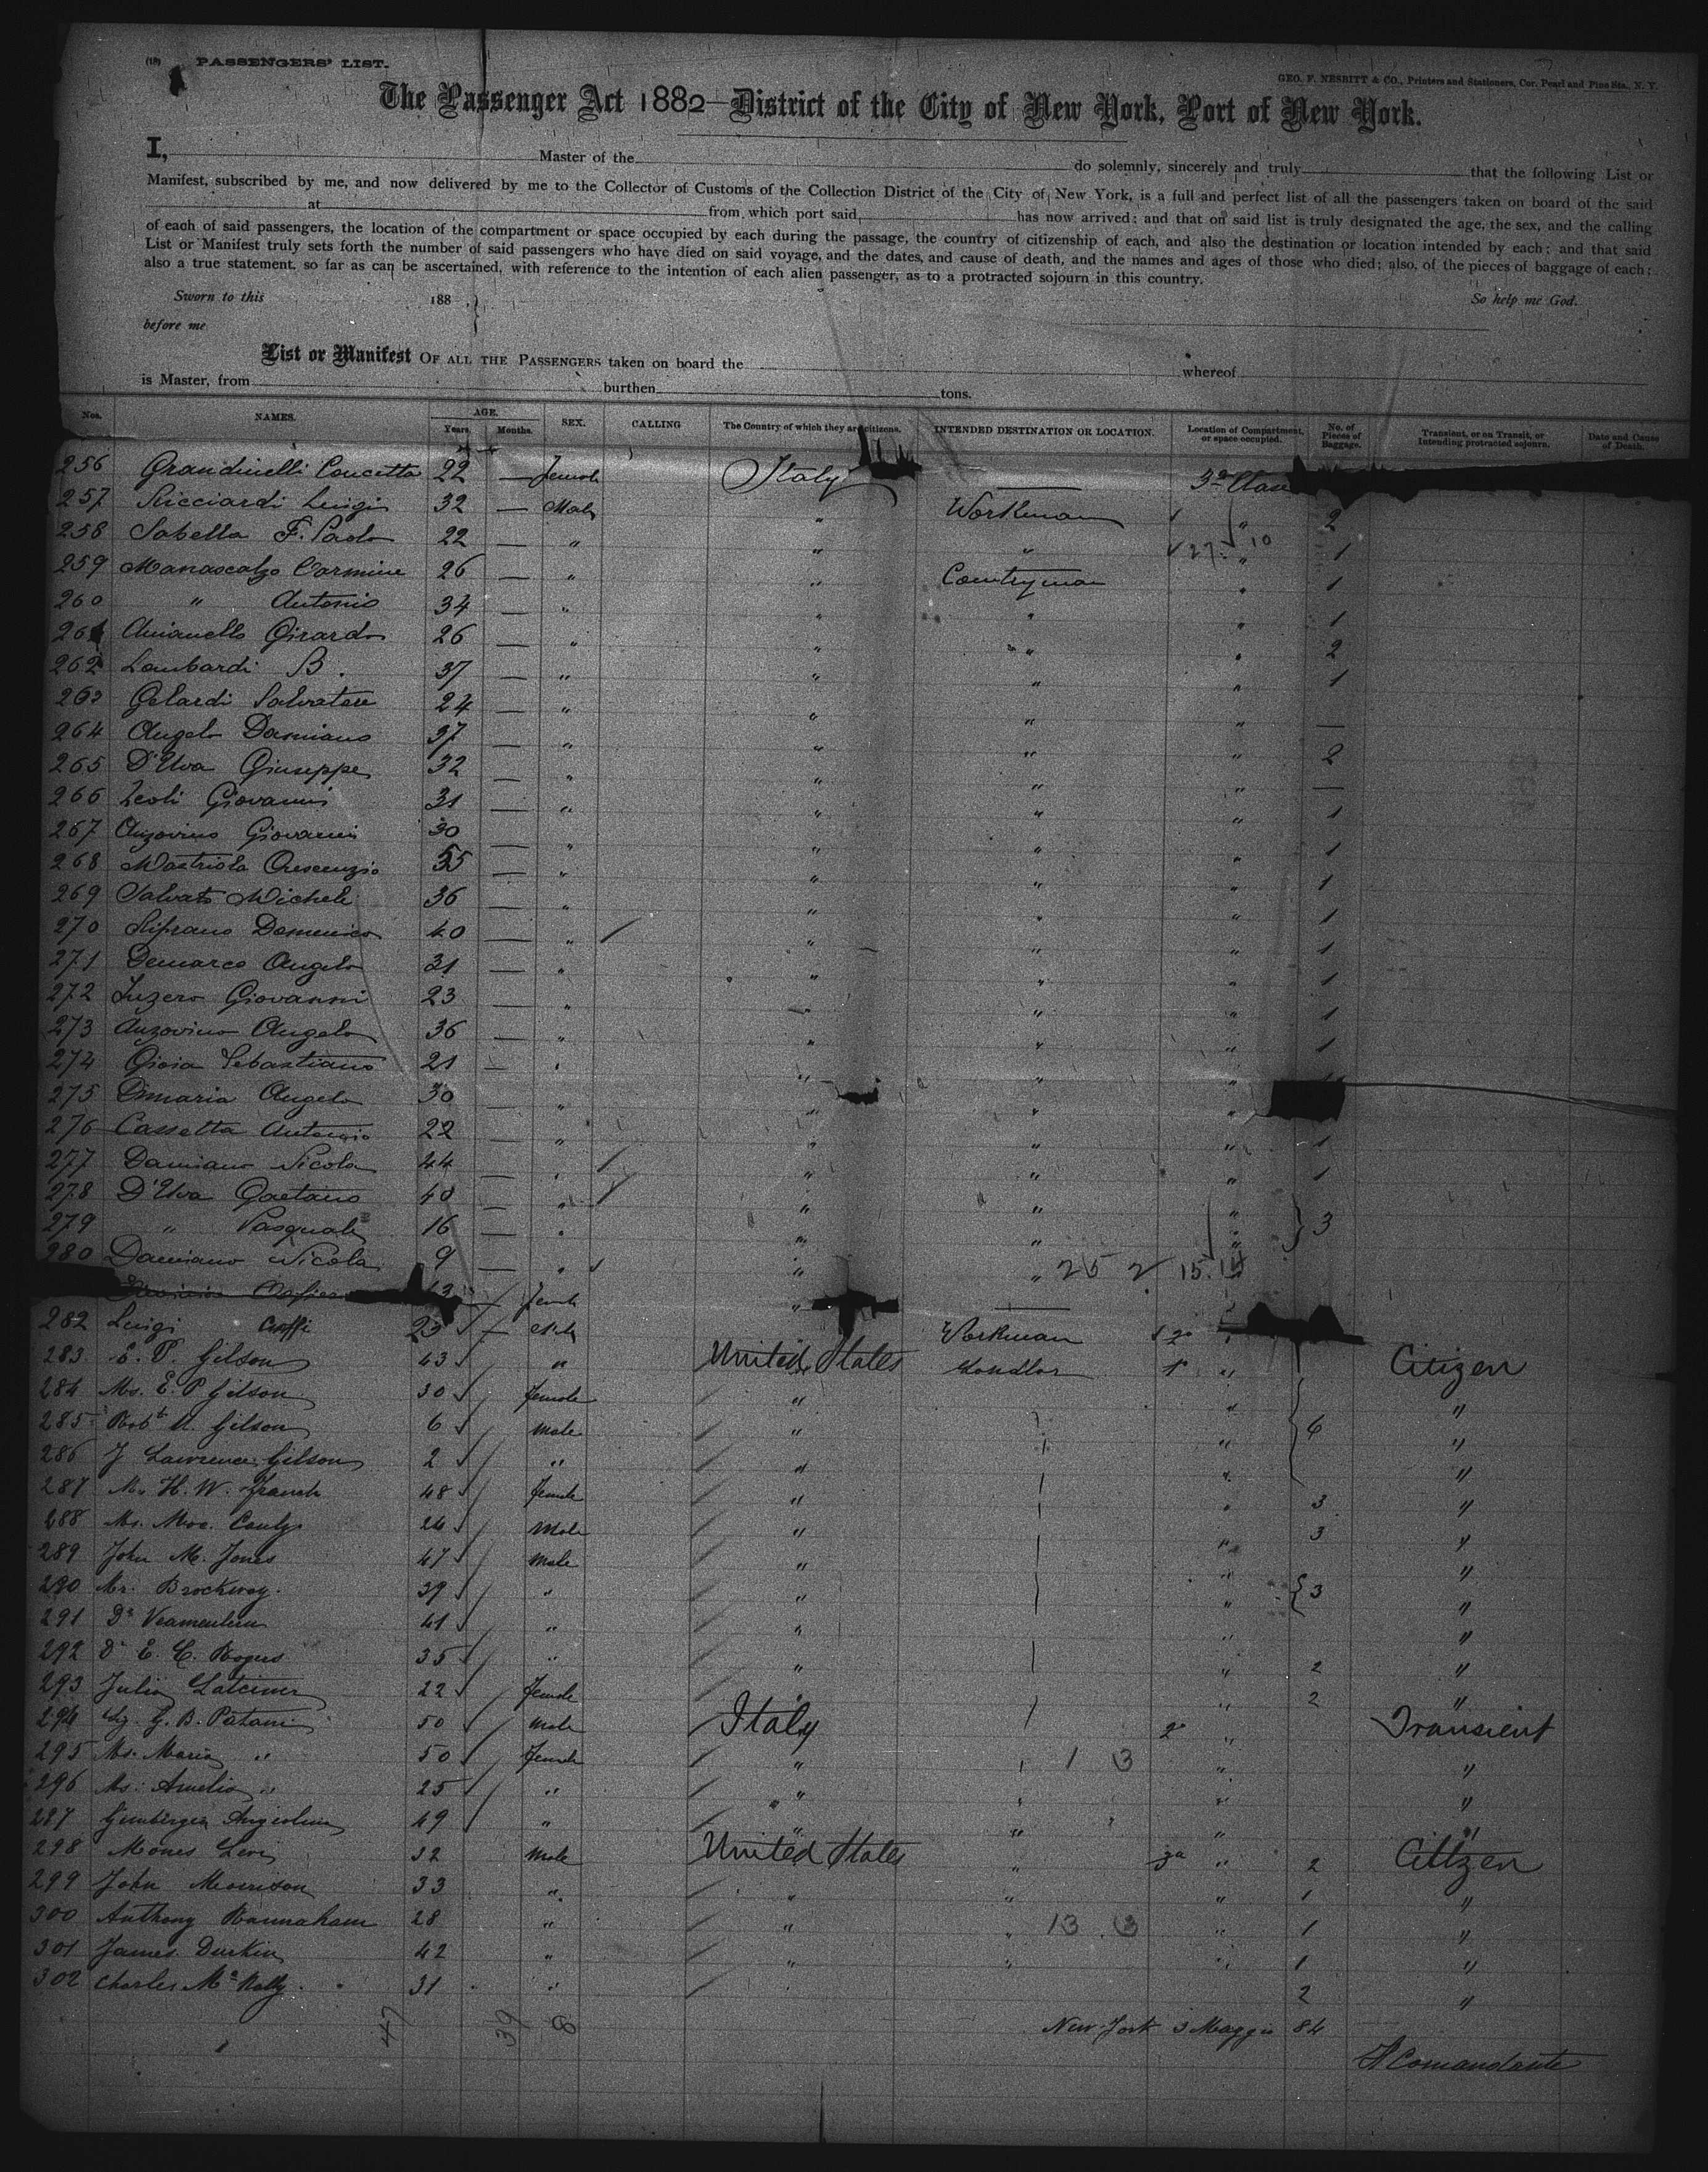 (18) PASSENGERS' LIST.
GEO. F. NESBITT & CO., Printers and Stationers, Cor. Pearl and Pine Sts., N. Y.
The Passenger Act 1882—District of the City of New York, Port of New York.
I, Master of the do solemnly, sincerely and truly that the following List or
Manifest, subscribed by me, and now delivered by me to the Collector of Customs of the Collection District of the City of New York, is a full and perfect list of all the passengers taken on board of the said
at from which port said, has now arrived; and that on said list is truly designated the age, the sex, and the calling
of each of said passengers, the location of the compartment or space occupied by each during the passage, the country of citizenship of each, and also the destination or location intended by each; and that said
List or Manifest truly sets forth the number of said passengers who have died on said voyage, and the dates, and cause of death, and the names and ages of those who died; also, of the pieces of baggage of each;
also a true statement, so far as can be ascertained, with reference to the intention of each alien passenger, as to a protracted sojourn in this country.
Sworn to this 188 . So help me God.
before me
List or Manifest OF ALL THE PASSENGERS taken on board the whereof
is Master, from burthen tons.
Nos. NAMES. AGE. Years. Months. SEX. CALLING The Country of which they are citizens. INTENDED DESTINATION OR LOCATION. Location of Compartment or space occupied. No. of Pieces of Baggage. Transient, or on Transit, or Intending protracted sojourn. Date and Cause of Death.
256 Grandinelli Concetta 22 — Female Italy — 3a Class
257 Ricciardi Luigi 32 — Male " Workman " 2
258 Sabella F. Paolo 22 — " " " " 1
259 Manascalzo Carmine 26 — " " Countryman " 1
260 " Antonio 34 — " " " " 1
261 Girardo 26 — " " " " 2
262 Lombardi B. 37 — " " " " 1
263 Gelardi Salvatore 24 — " " " " —
264 Angelo Damiano 37 — " " " " 2
265 D'Uva Giuseppe 32 — " " " " —
266 Leoli Giovanni 31 — " " " " 1
267 Anzovino Giovanni 30 — " " " " 1
268 Mastriola Crescenzio 55 — " " " " 1
269 Salvato Michele 36 — " " " " 1
270 Domenico 40 — " " " " 1
271 Demarco Angelo 31 — " " " " 1
272 Luzero Giovanni 23 — " " " " 1
273 Anzovino Angelo 36 — " " " " 1
274 Gioia Sebastiano 21 — " " " "
275 Dimaria Angelo 30 — " " " "
276 Cassetta Antonio 22 — " " " " 1
277 Damiano Nicola 44 — " " " " 1
278 D'Uva Gaetano 40 — " " " "
279 " Pasquale 16 — " " " " 3
280 Damiano Nicola 9 — " " " "
Female " —
282 Luigi 23 — Male " Workman 2a "
283 E. P. Gilson 43 " United States 1a " Citizen
284 Ms. E. P Gilson 30 female " " "
285 Robt. Gilson 6 male " " 6 "
286 J Lawrence Gilson 2 " " " "
287 H. W. French 48 female " " 3 "
288 24 Male " " 3 "
289 John M. Jones 47 male " " "
290 Mr. Brockway 39 " " " 3 "
291 Dr 41 " " " "
292 Dr E. C. Rogers 35 " " " 2 "
293 Julia Latimer 22 female " " 2 "
294 Sig. G. B. Patani 50 male Italy 2a " Transient
295 Ms. Maria " 50 female " " "
296 Ms. Amelia " 25 " " " "
297 Angiolina 49 " " " " "
298 Levi 32 Male United States " 3a " 2 Citizen
299 John Morrison 33 " " " " 1 "
300 Anthony Hannaham 28 " " " " 1 "
301 James Durkin 42 " " " " 1 "
302 Charles McNally 31 " 2 "
47 39 8
New-York 3 Maggio 84
Il Comandante